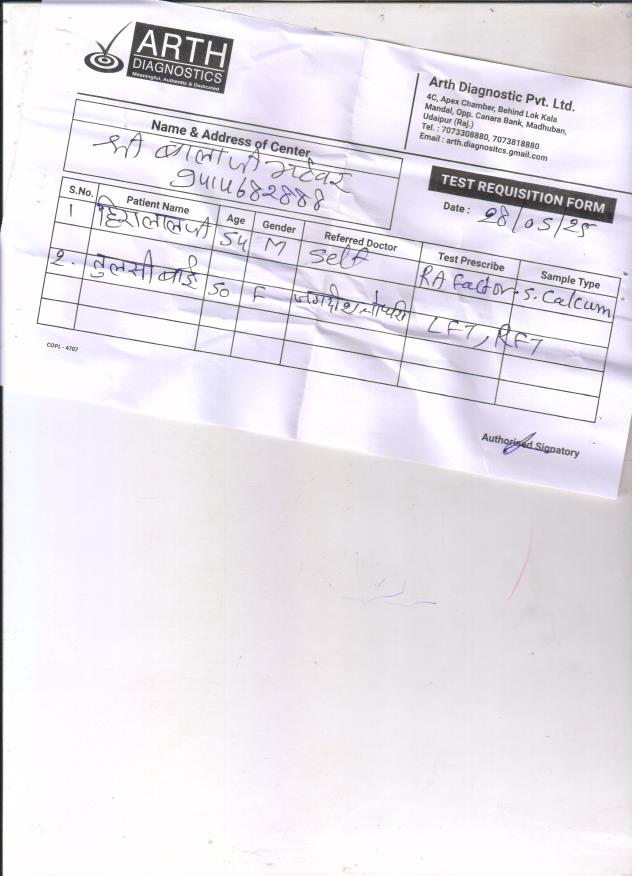 ARTH
DIAGNOSTICS
Meaningful, Authentic & Dedicated
Arth Diagnostic Pvt. Ltd.
4C, Apex Chamber, Behind Lok Kala
Mandal, Opp. Canara Bank, Madhuban,
Udaipur (Raj.)
Tel. : 7073308880, 7073818880
Email : arth.diagnositcs.gmail.com
Name & Address of Center
श्री बालाजी
9414682888
TEST REQUISITION FORM
Date : 28/05/25
S.No. Patient Name Age Gender Referred Doctor Test Prescribe Sample Type
1 हिरालालजी 54 M Self RA Factor. S. Calcum
2. तुलसी बाई 50 F जगदीश LFT, RFT
COPL - 4707
Authorised Signatory